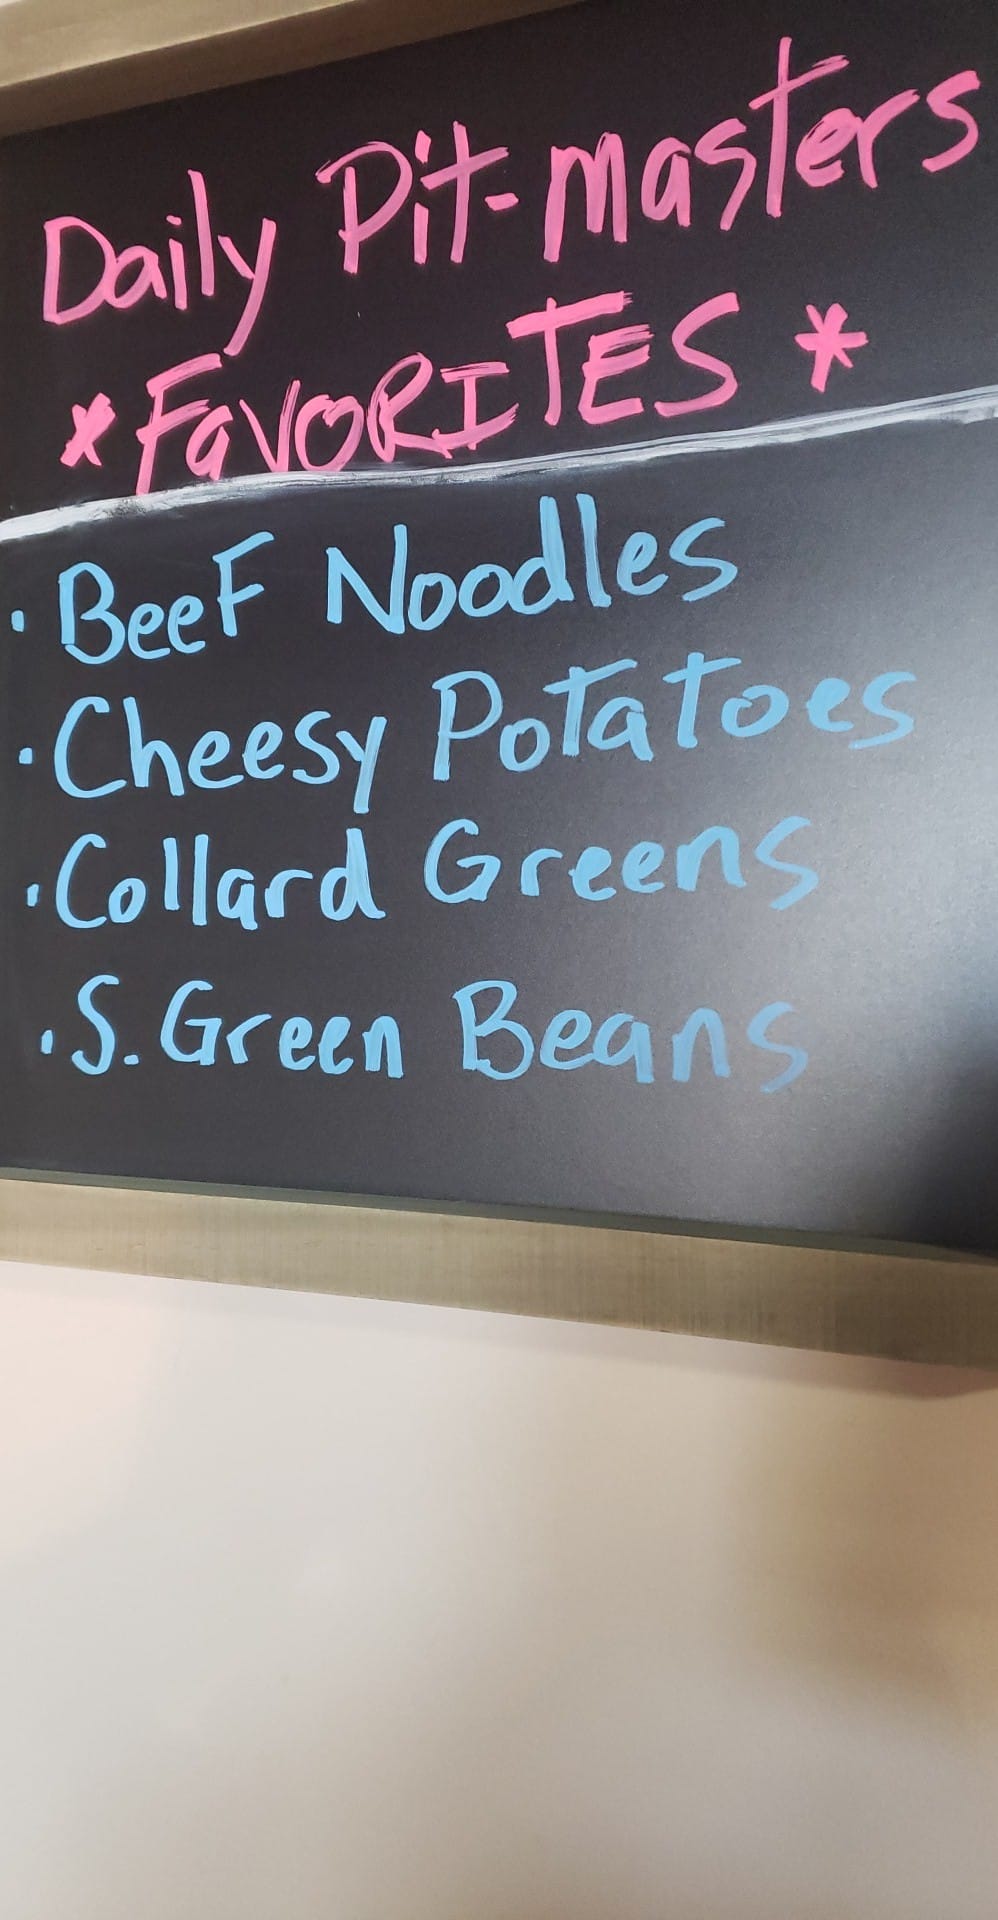 Daily Pit-masters
*FaVORITES*
· BeeF Noodles
· Cheesy Potatoes
· Collard Greens
· S. Green Beans